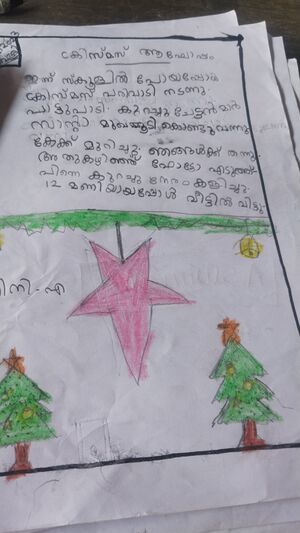 ക്രിസ്മസ് ആഘോഷം
ഇന്ന് സ്കൂളിൽ പോയപ്പോൾ
ക്രിസ്മസ് പരിപാടി നടന്നു.
പാട്ടുപാടി. കുറച്ചു ചേട്ടൻമാർ
സാന്റാ മുഖംമൂടി കൊണ്ടുവന്നു.
കേക്ക് മുറിച്ചു. ഞങ്ങൾക്ക് തന്നു.
അതുകഴിഞ്ഞ് ഫോട്ടോ എടുത്തു.
പിന്നെ കുറച്ചു നേരം കളിച്ചു.
12 മണിയായപ്പോൾ വീട്ടിൽ വിട്ടു.